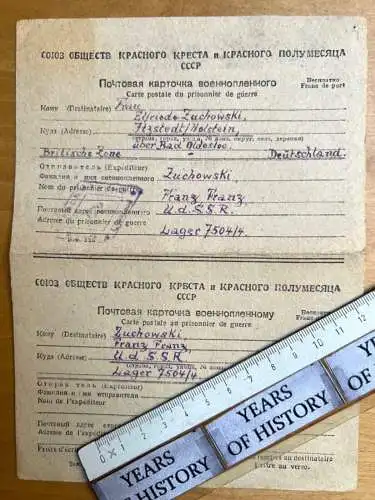 СОЮЗ ОБЩЕСТВ КРАСНОГО КРЕСТА и КРАСНОГО ПОЛУМЕСЯЦА
СССР
Почтовая карточка военнопленного
Carte postale du prisonnier de guerre
Бесплатно
Franc de port
Кому (Destinataire) Frau
Zuchowski,
Куда (Adresse) Holstein,
(страна, город, улица, № дома, округ, село, деревня)
über Bad Oldesloe.
Britische Zone - Deutschland.
Отправитель (Expéditeur)
Фамилия и имя военнопленного Zuchowski,
Nom du prisonnier de guerre
Franz Franz
Почтовый адрес военнопленного U.d.S.S.R.
Adresse du prisonnier de guerre
Lager 7504/4.
СОЮЗ ОБЩЕСТВ КРАСНОГО КРЕСТА и КРАСНОГО ПОЛУМЕСЯЦА
СССР
Почтовая карточка военнопленному
Carte postale au prisonnier de guerre
Бесплатно
Кому (Destinataire) Zuchowski,
Franz Franz,
Куда (Adresse) U.d.S.S.R.
Lager 7504/4.
Отправитель (Expéditeur)
Фамилия и имя отправителя
Nom de l'expéditeur
Почтовый адрес
Adresse de
au destinataire
Lettre au verso.
0 1 2 3 4 5 6 7 8 9 10 11 12
YEARS
OF HISTORY
YEARS
OF HISTORY
YEARS
OF HISTORY